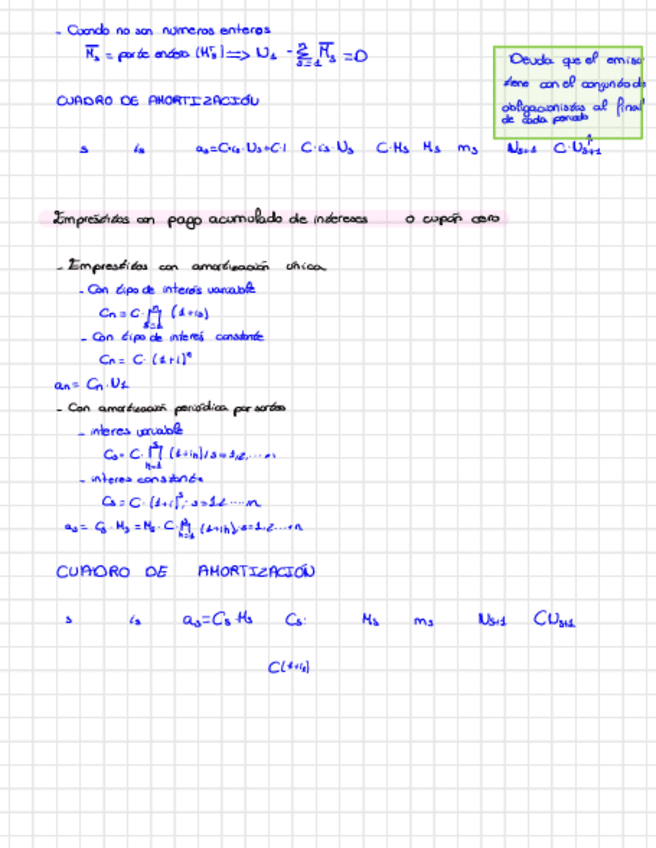 - Cuando no son numeros enteros
M̅s = parte entera (M's) ⟹ N1 - Σ(s=1, n) M̅s = 0
Deuda que el emisor
tiene con el conjunto de
obligacionistas al final
de cada periodo
CUADRO DE AMORTIZACIÓN
s is as=C·is·Ns+C· C·is·Ns C·Ms Ms ms Ns+1 C·Ns+1
Empréstitos con pago acumulado de intereses o cupón cero
- Empréstitos con amortización única
- Con tipo de interés variable
Cn = C·∏(s=1, n) (1+is)
- Con tipo de interés constante
Cn = C·(1+i)^n
an = Cn·N1
- Con amortización periódica por sorteo
- interes variable
Cs = C·∏(h=1, s) (1+ih); s=1,2,....n
- interes constante
Cs = C·(1+i)^s; s=1,2.....n
as = Cs·Ms = Ms·C·∏(h=1, s) (1+ih); s=1,2,...n
CUADRO DE AMORTIZACIÓN
s is as=Cs·Ms Cs· Ms ms Ns+1 CNs+1
C(1+is)